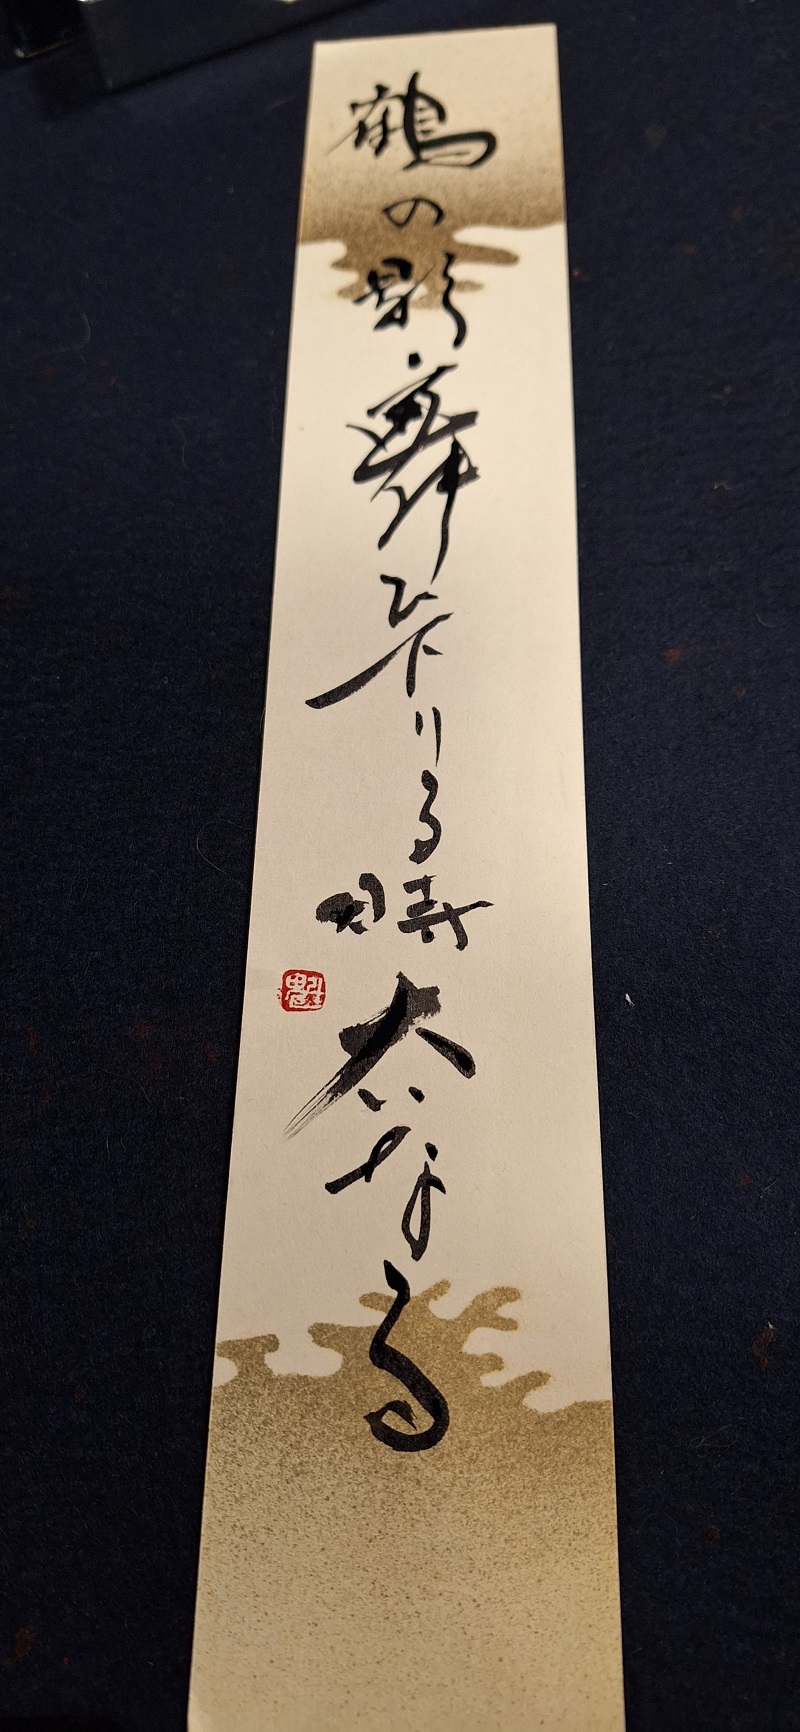 鶴の影舞ひ下りる時大いなる